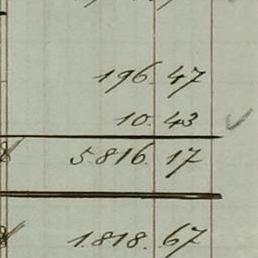 196.47
10.43
5.816.17
1.818.67